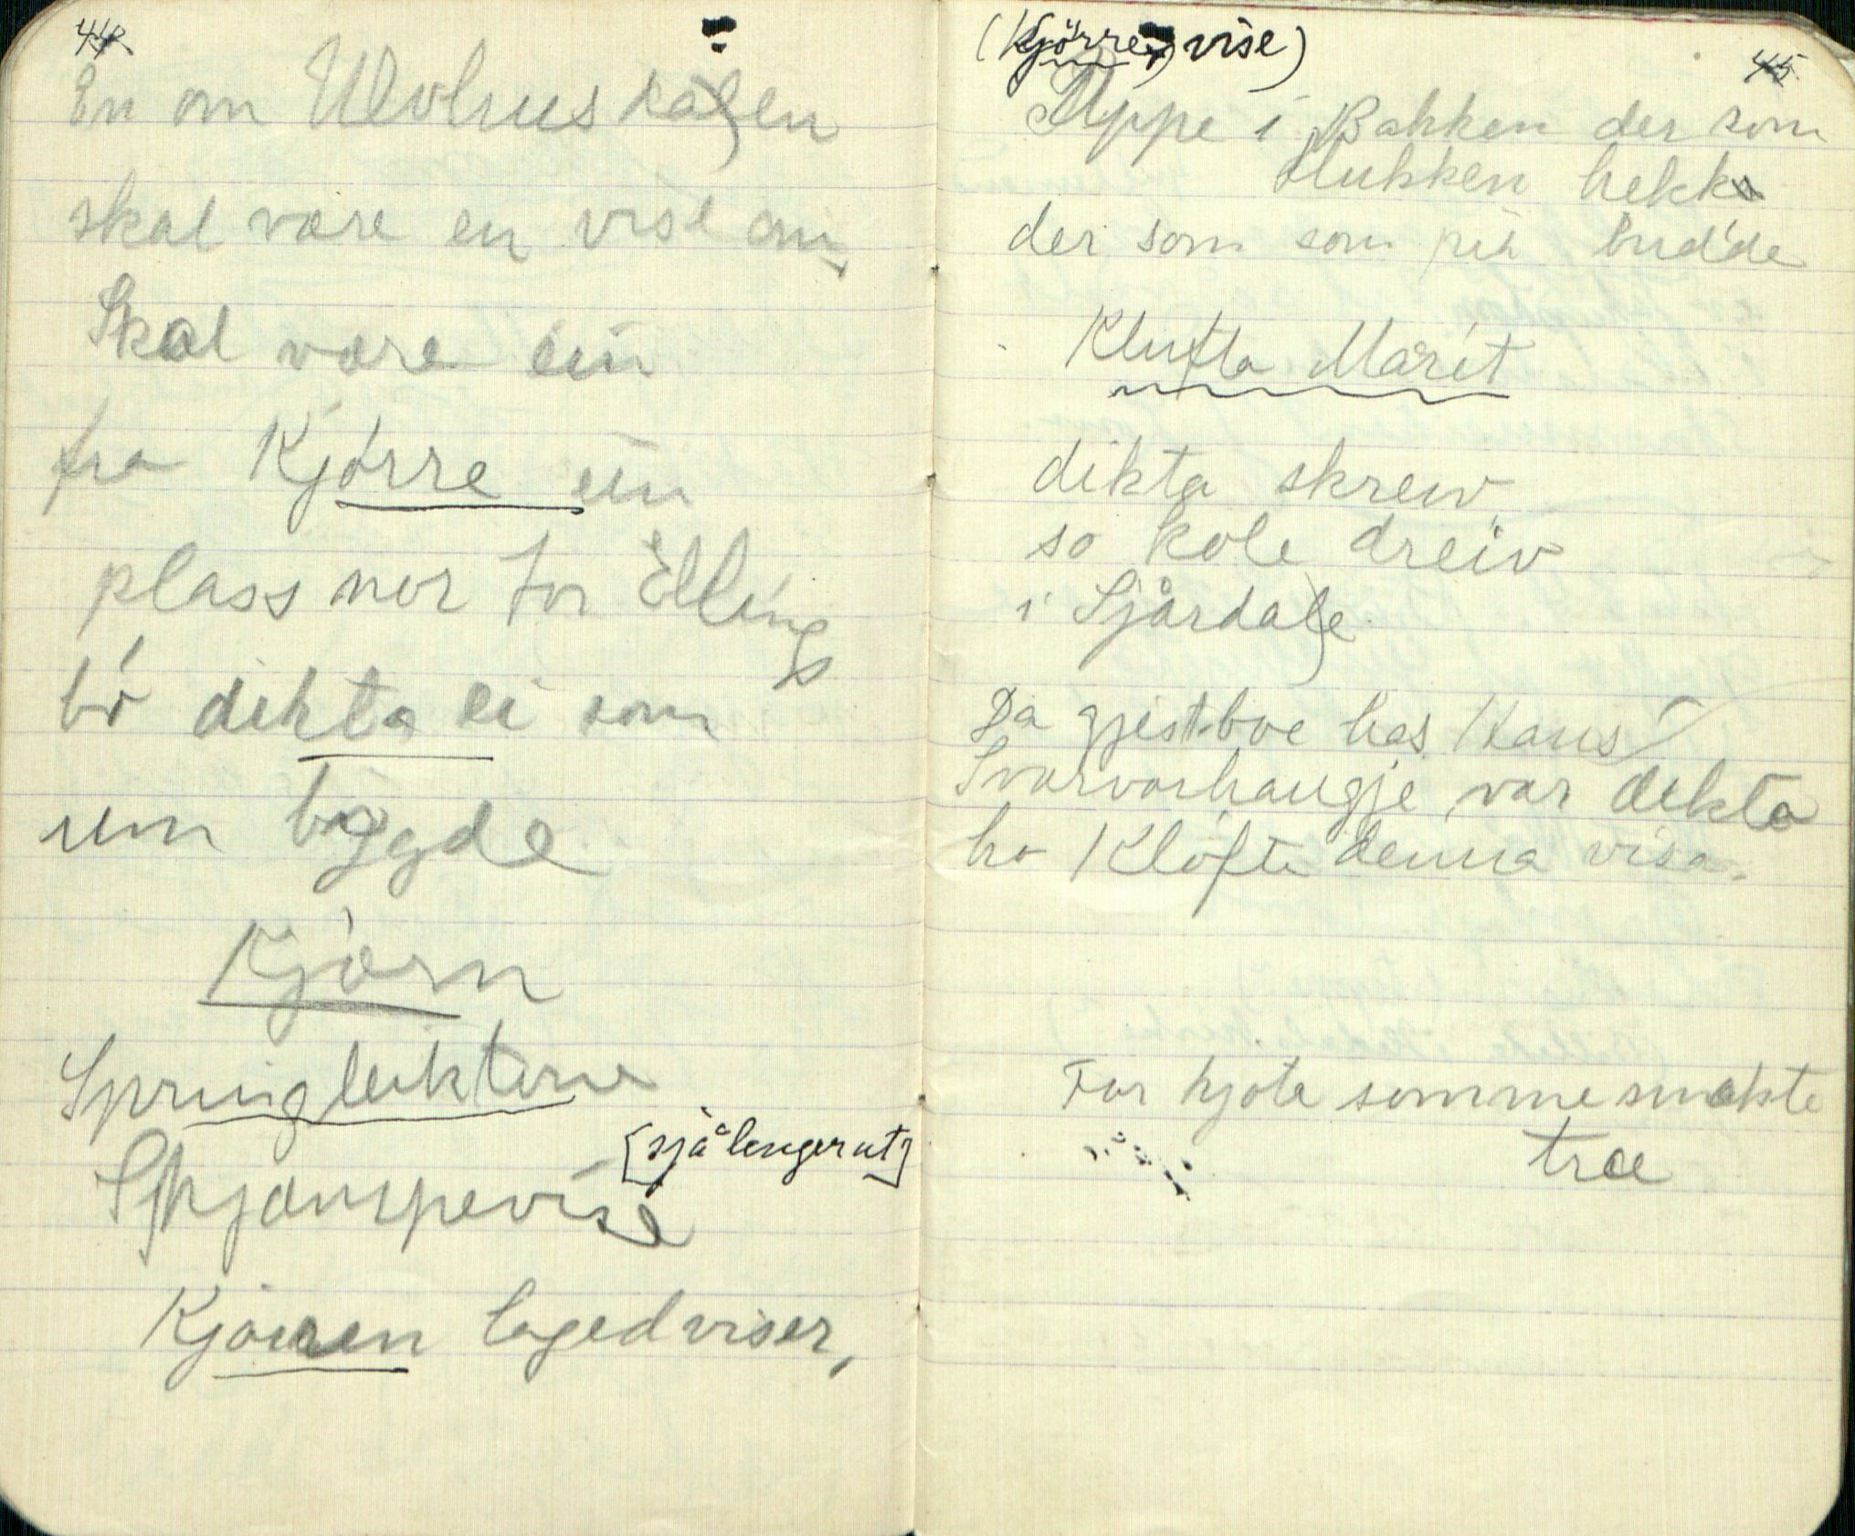 44
En om Ulvhuskallen
skal være en vise om
Skal være ein
fra Kjørre ein
plass nor for Ellings
bø dikta ei som
um bygde
Kjørn
Springleiktone
[sjå lenger ut]
Skjæmpevise
Kjørren laged viser,
(Kjørre, vise)
45
Uppe i Bakken der som
Hukken hekk
der som som budde
Klufta Marit
dikta skreiv
so kole dreiv
i Sjårdale
Da gjestboe has Hans
Svarvarhaugje var dikta
ho Kløfte denna visa.
For kjøte somme smakte
træ